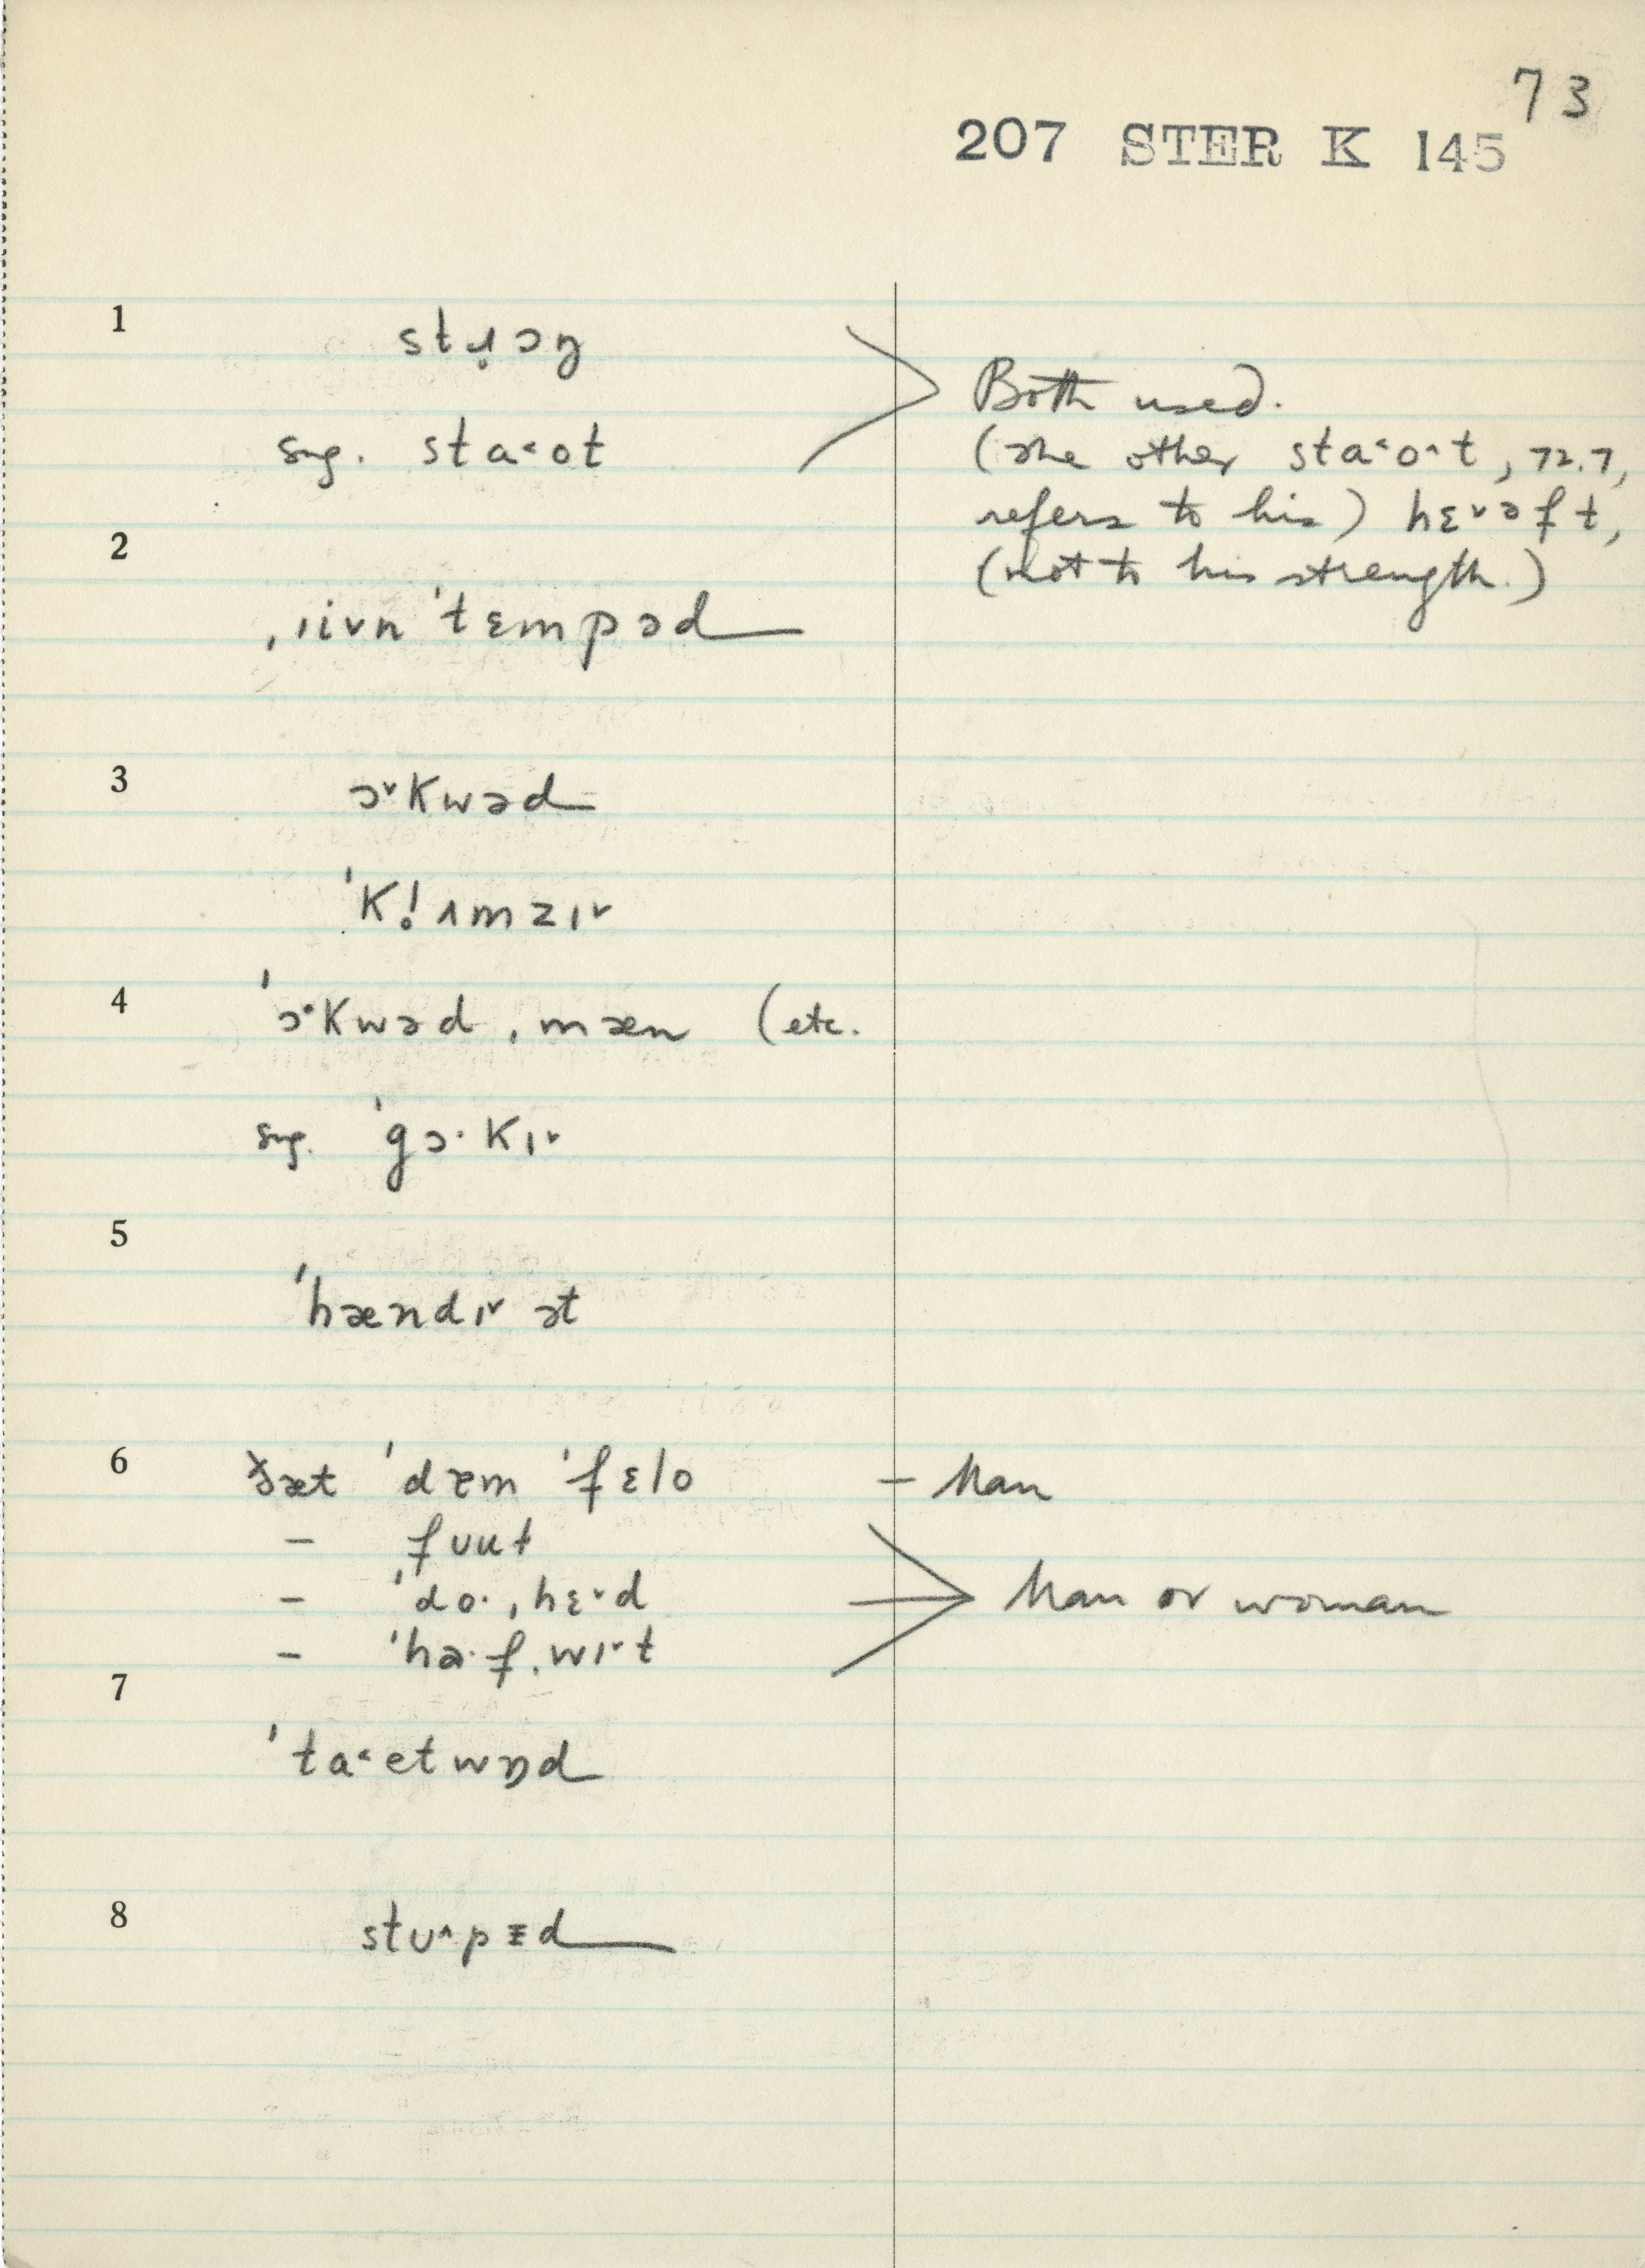 73
207 STER K 145
1
stɹ̣ɔŋ
sug. sta˂ot
Both used.
(The other sta˂o˄t, 72.7,
refers to his) hɛ˅əft,
(not to his strength.)
2
ˌɪivn ˈtɛmpəd
3
ɔ˅Kwəd
ˈKl̥ʌmzɪ˅
4
ˈɔ˂Kwəd ˌmæn (etc.
sug. ˈgɔ·Kɪ˅
5
ˈhændɪ˅ ət
6
ðæt ˈdɐm ˈfɛlo – Man
– fuut
– ˈdo·ˌhɛ˅d
– ˈha·fˌwɪ˅t
Man or woman
7
ˈta˂etwɒd
8
stu˄pɪd